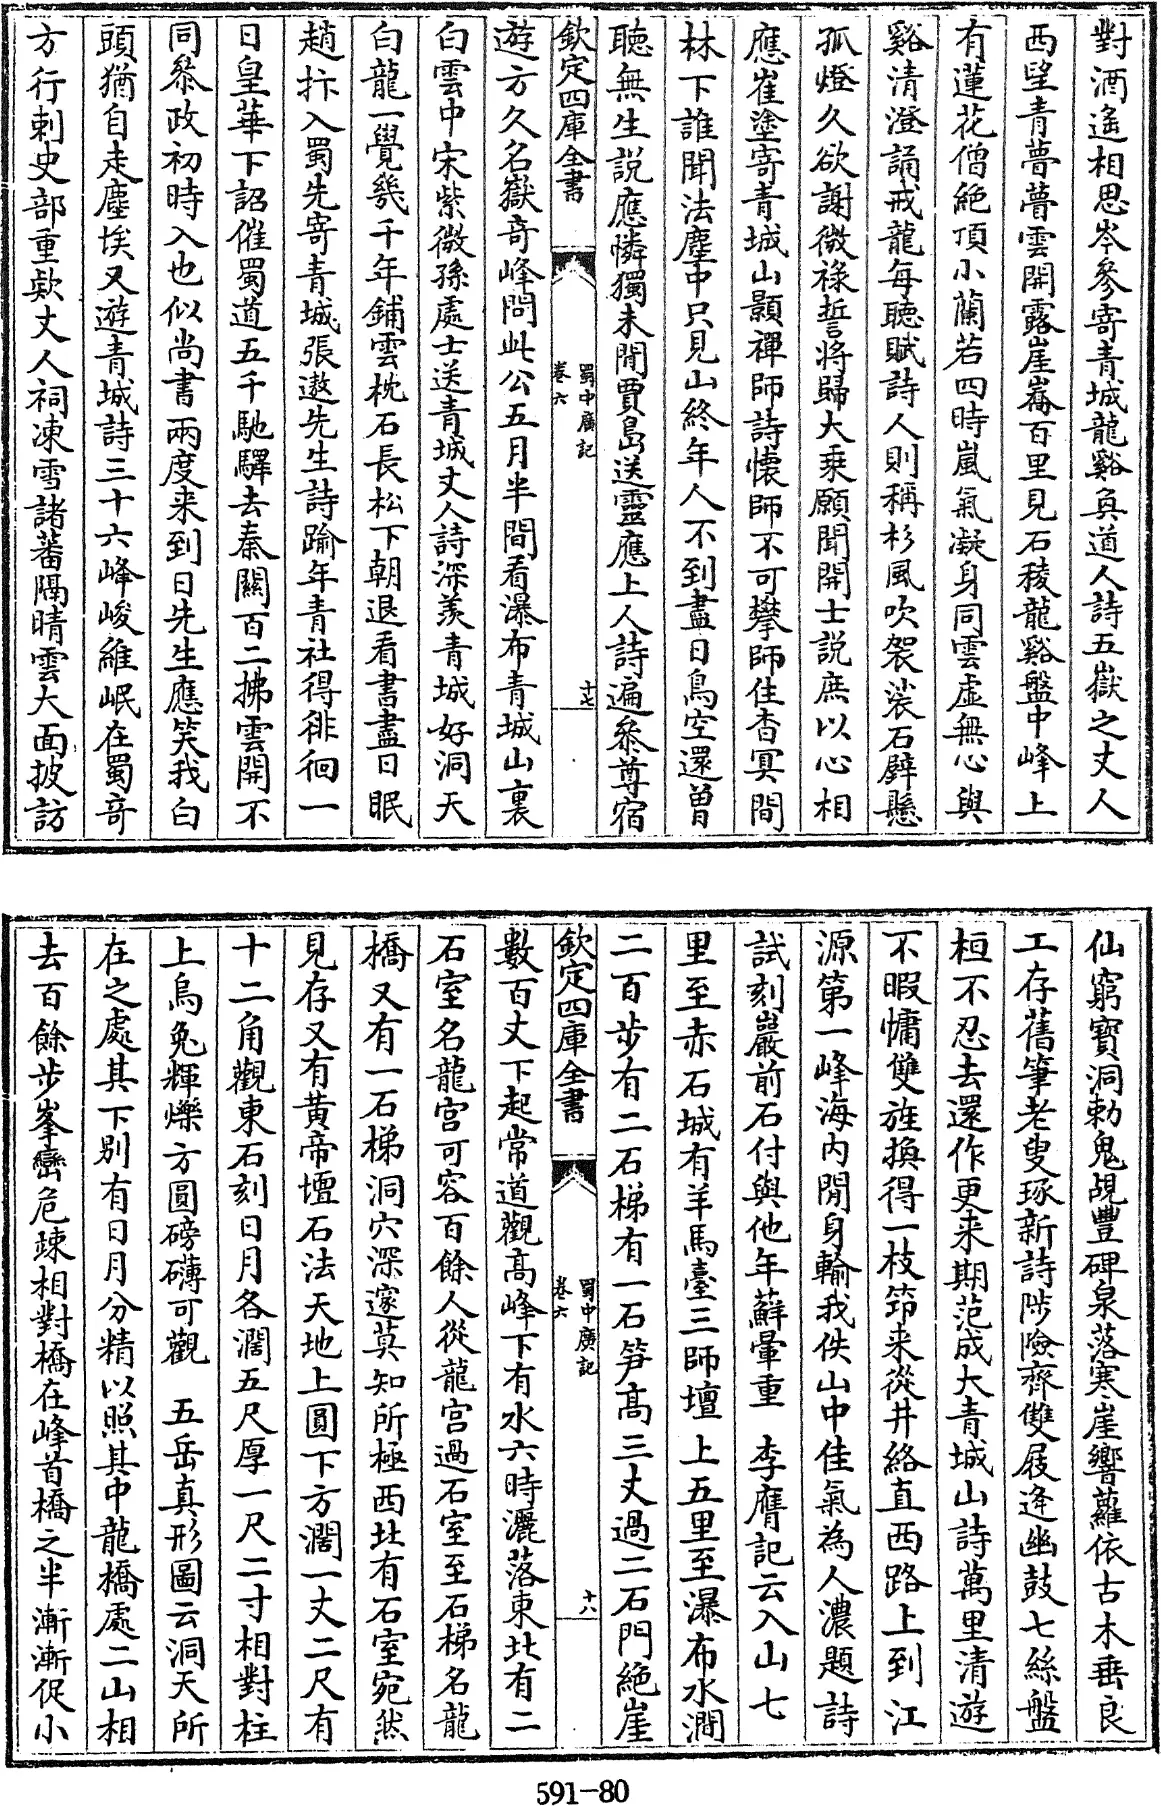 對酒遙相思岑參寄青城龍谿奐道人詩五嶽之丈人
西望青瞢瞢雲開露崖嶠百里見石稜龍谿盤中峰上
有蓮花僧絶頂小蘭若四時嵐氣凝身同雲虛無心與
谿清澄誦戒龍每聽賦詩人則稱杉風吹袈裟石壁懸
孤燈久欲謝微祿誓將歸大乘願聞開士説庶以心相
應崔塗寄青城山顥禪師詩懷師不可攀師住杳冥間
林下誰聞法塵中只見山終年人不到盡日鳥空還曾
聽無生説應憐獨未閒賈島送靈應上人詩遍叅尊宿
欽定四庫全書
蜀中廣記
卷六
十七
遊方久名嶽奇峰問此公五月半間看瀑布青城山裏
白雲中宋紫微孫處士送青城丈人詩深羨青城好洞天
白龍一覺幾千年鋪雲枕石長松下朝退看書盡日眠
趙抃入蜀先寄青城張遨先生詩踰年青社得徘徊一
日皇華下詔催蜀道五千馳驛去秦關百二拂雲開不
同叅政初時入也似尚書兩度来到日先生應笑我白
頭猶自走塵埃又遊青城詩三十六峰峻維岷在蜀奇
方行刺史部重欵丈人祠凍雪諸蕃隔晴雲大面披訪
仙窮寶洞勅鬼覘豐碑泉落寒崖響蘿依古木垂良
工存舊筆老叟琢新詩陟險齊雙屐逢幽鼓七絲盤
桓不忍去還作更来期范成大青城山詩萬里清遊
不暇慵雙旌換得一枝筇来從井絡直西路上到江
源第一峰海内閒身輸我佚山中佳氣為人濃題詩
試刻巖前石付與他年蘚暈重　李膺記云入山七
里至赤石城有羊馬臺三師壇上五里至瀑布水澗
二百步有二石梯有一石笋高三丈過二石門絶崖
欽定四庫全書
蜀中廣記
卷六
十八
數百丈下起常道觀高峰下有水六時灑落東北有二
石室名龍宫可容百餘人從龍宫過石室至石梯名龍
橋又有一石梯洞穴深邃莫知所極西北有石室宛然
見存又有黄帝壇石法天地上圓下方濶一丈二尺有
十二角觀東石刻日月各濶五尺厚一尺二寸相對柱
上烏兔輝爍方圓磅礡可觀　五岳真形圖云洞天所
在之處其下別有日月分精以照其中龍橋處二山相
去百餘步峯巒危竦相對橋在峰首橋之半漸漸促小
591-80